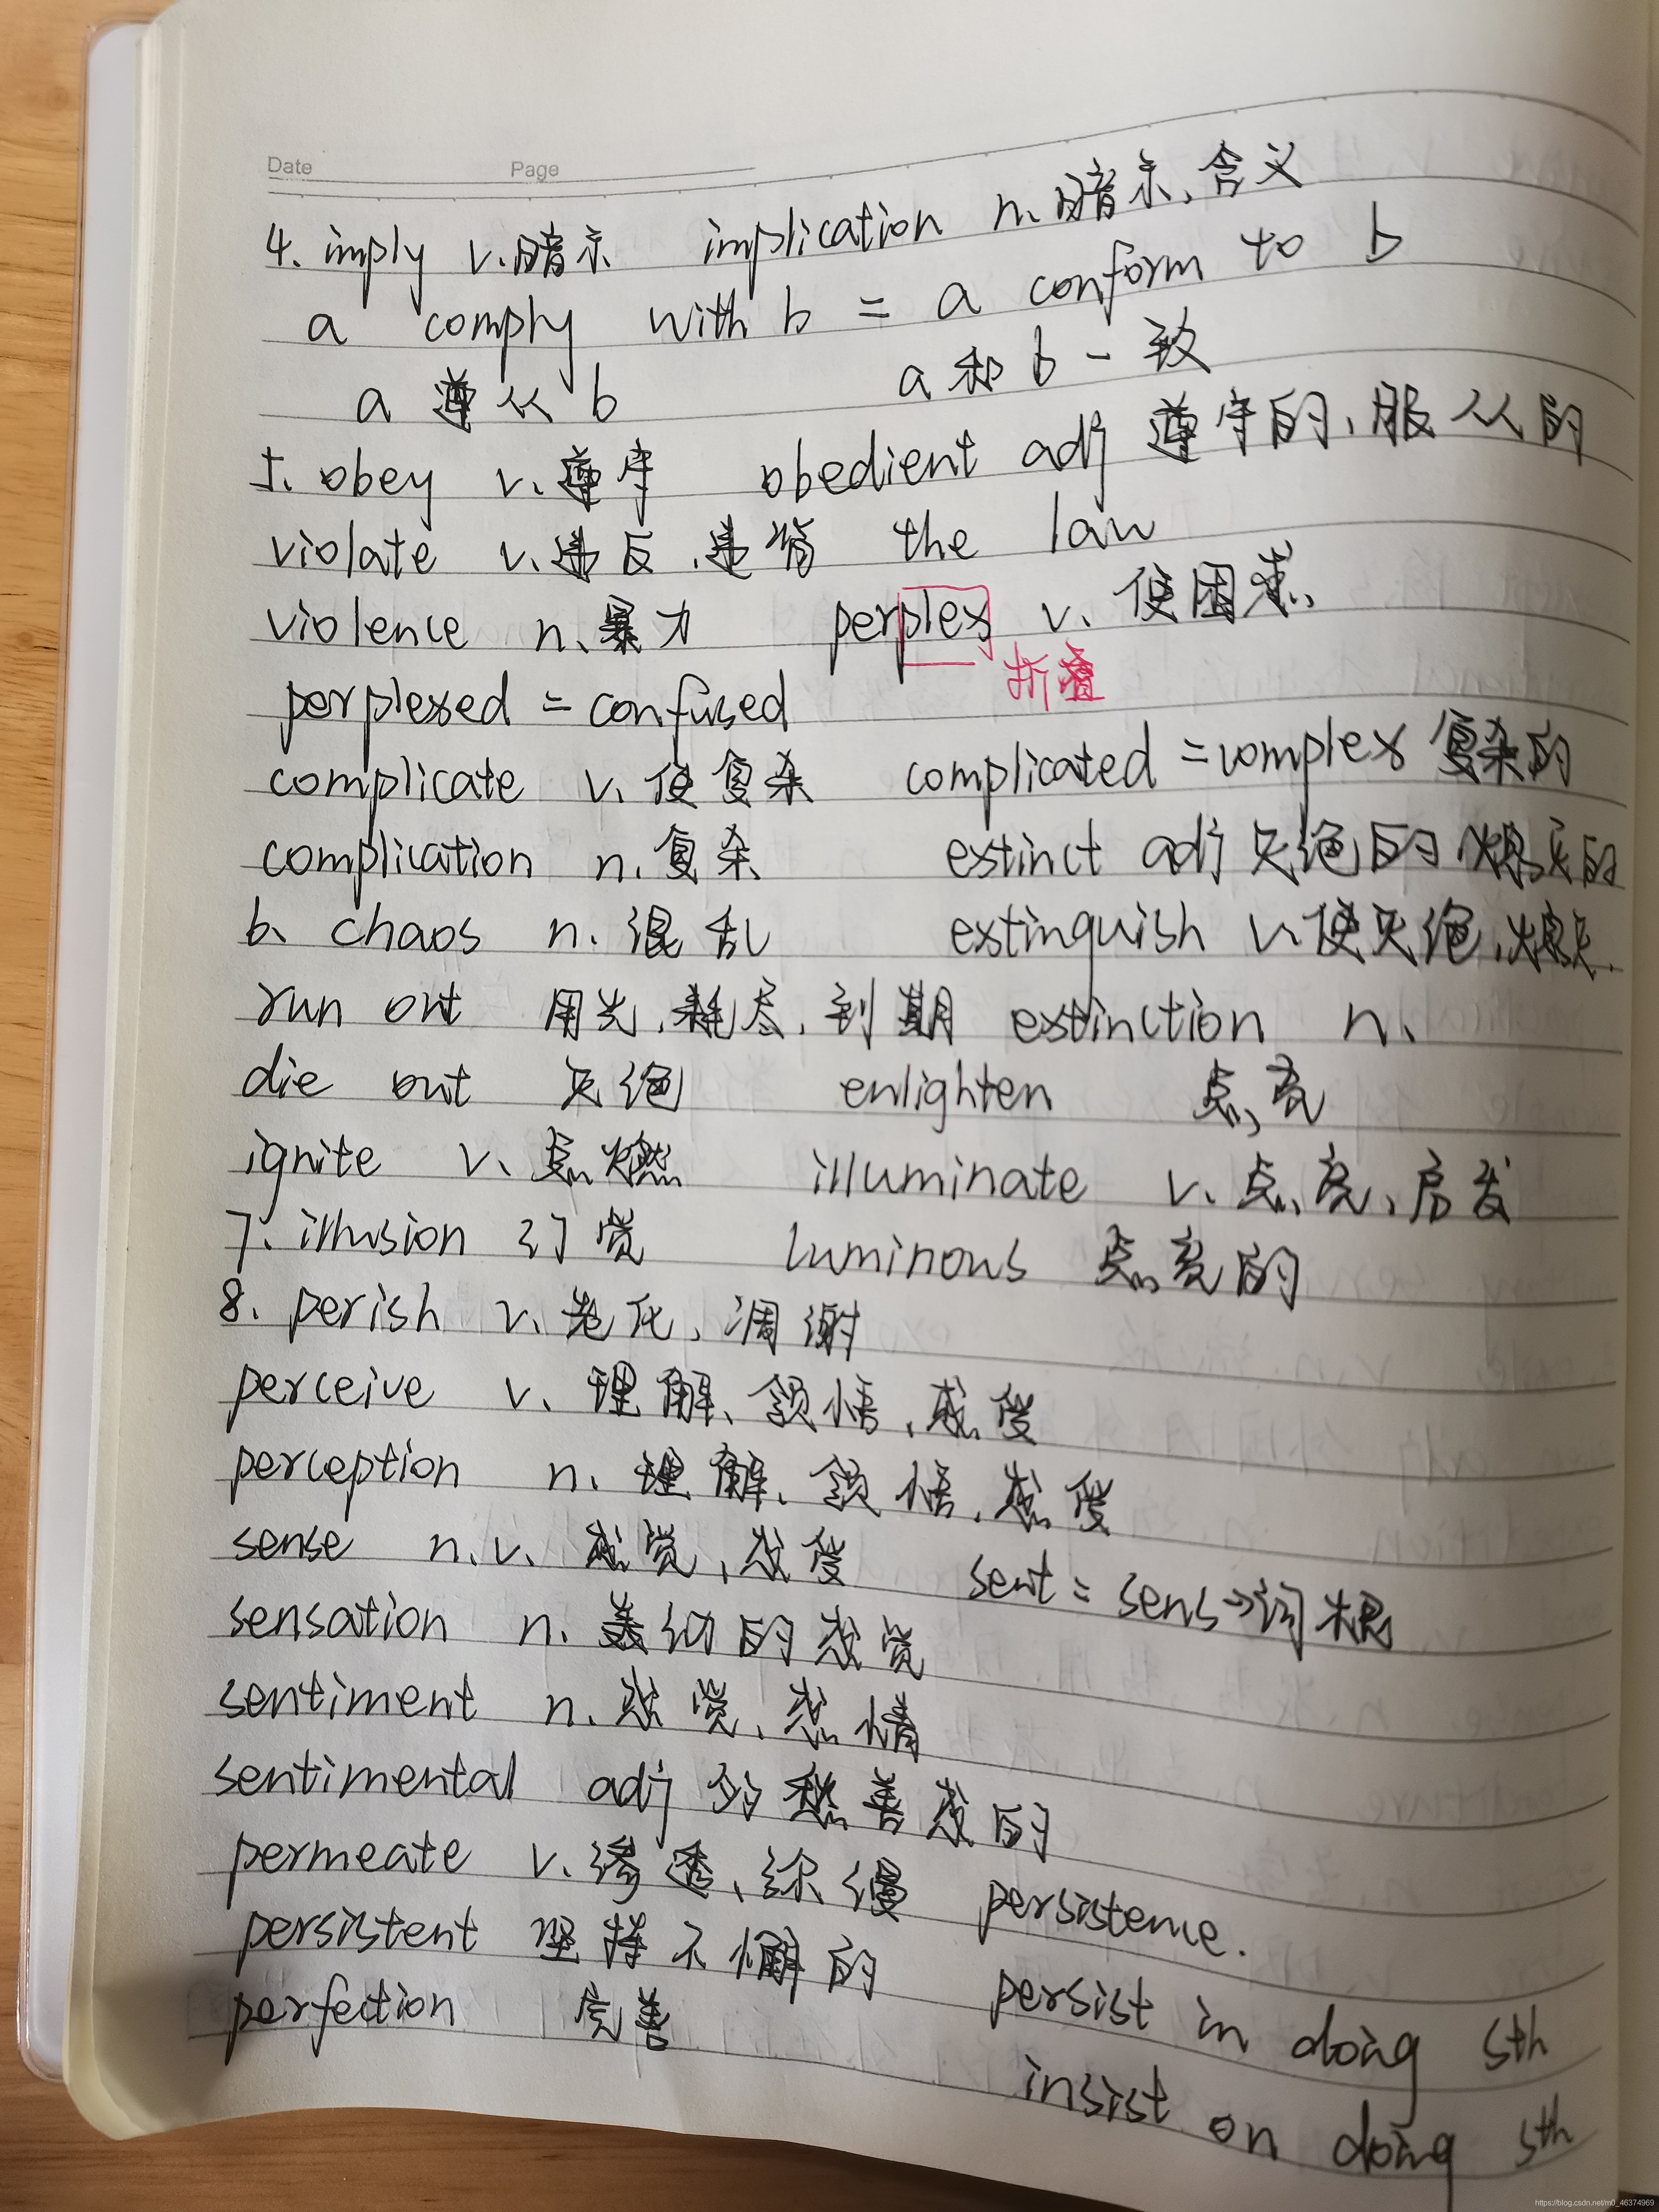 Date Page
4. imply v.暗示 implication n.暗示、含义
a comply with b = a conform to b
a 遵从 b a和b一致
5. obey v.遵守 obedient adj 遵守的、服从的
violate v.违反,违背 the law
violence n.暴力 perplex v.使困惑
折叠
perplexed = confused
complicate v.使复杂 complicated = complex 复杂的
complication n.复杂 extinct adj 灭绝的 熄灭的
6. chaos n.混乱 extinguish v.使灭绝,熄灭
run out 用光,耗尽,到期 extinction n.
die out 灭绝 enlighten 点亮
ignite v.点燃 illuminate v.点亮,启发
7. illusion 幻觉 luminous 点亮的
8. perish v.老化,凋谢
perceive v.理解、领悟,感受
perception n.理解、领悟,感受
sense n.v. 感觉,感受 sent = sens→词根
sensation n.美幻的感觉
sentiment n.感觉,感情
sentimental adj 多愁善感的
permeate v.渗透、弥漫 persistence.
persistent 坚持不懈的 persist in doing sth
perfection 完善 insist on doing sth
https://blog.csdn.net/m0_46374969